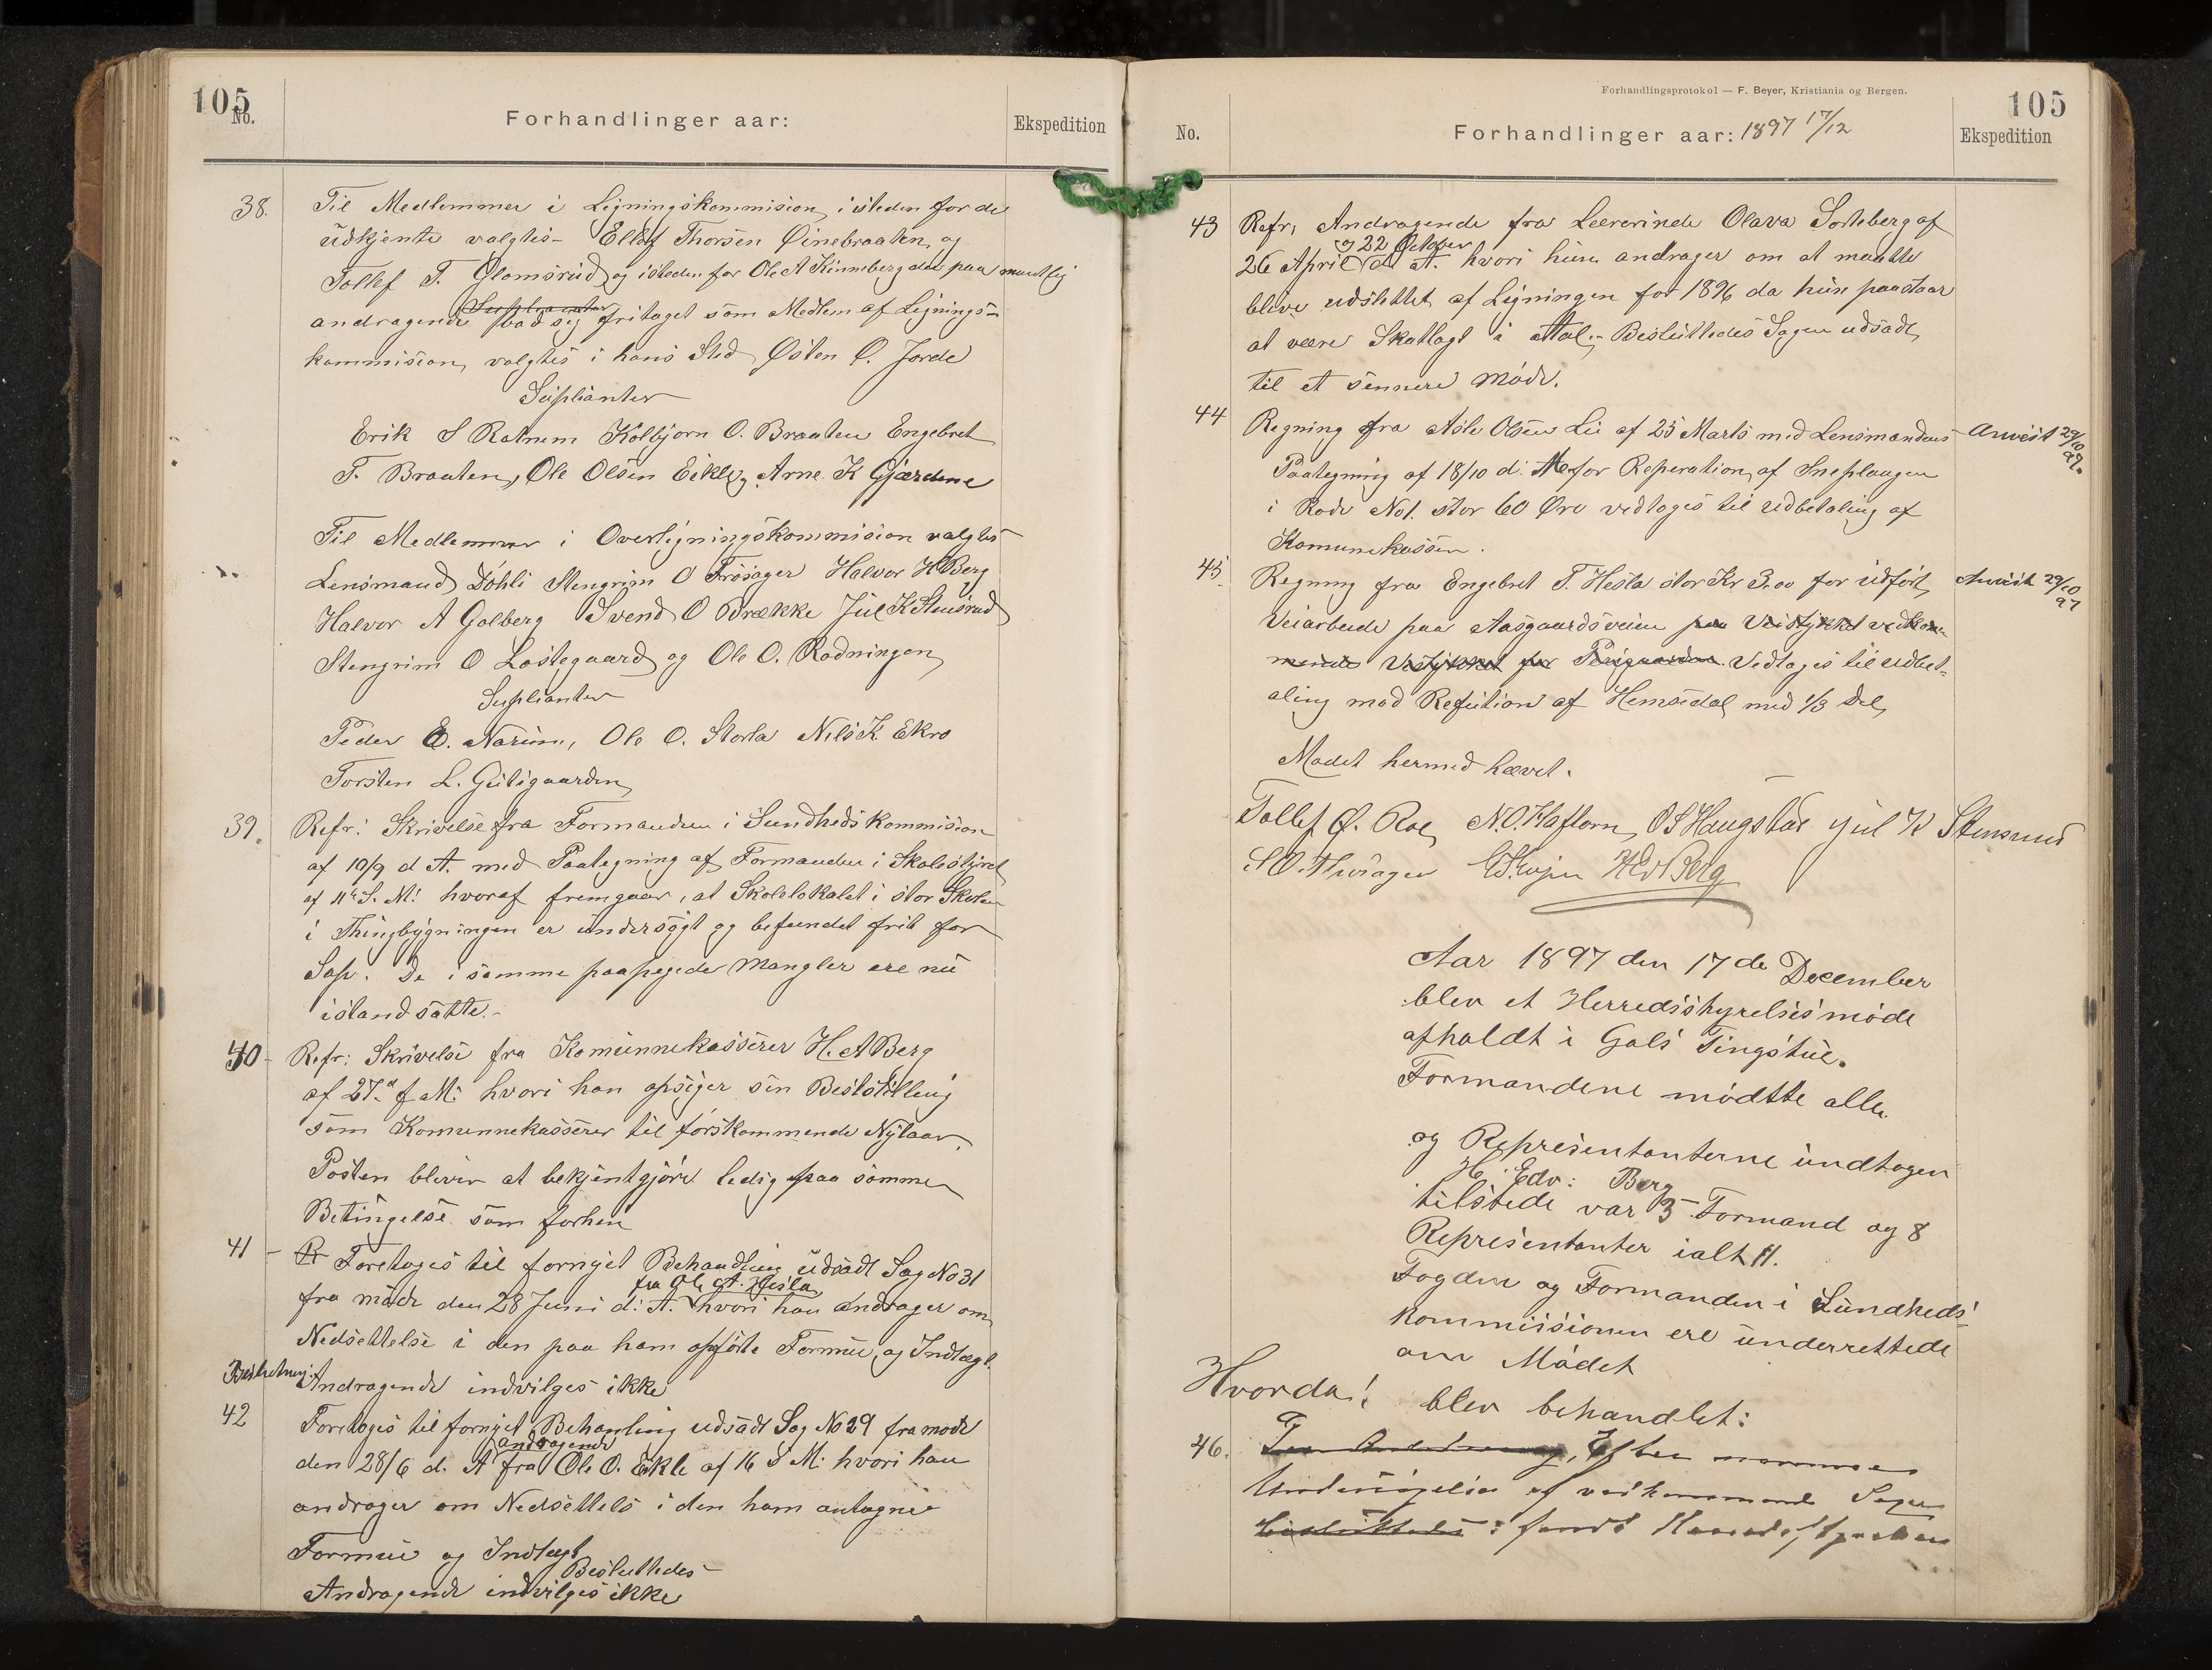 105
No.
Forhandlinger aar:
Ekspedition
38. Til Medlemmer i Ligningskommision, isteden for de
udkjente valgtes Ellef Thorsen Øinebraaten, og
Tollef T. Glomsrud, og isteden for Ole A Kinneberg der paa mundtlig
Suplianter
andragende bad sig fritaget som Medlem af Lignings-
kommision, valgtes i hans Sted Østen O. Jorde
Suplianter
Erik S Rotnem Kolbjørn O. Braaten Engebret
T. Braaten, Ole Olsen Eikle, Arne K Gjærdene
Til Medlemmer i Overligningskommision valgtes
Lensmand Döhli Stengrim O Trösager Halvor H Berg
Halvor A Golberg Svend O Brække Jul K Stensrud
Stengrim O Lostegaard og Ole O. Rodningen
Suplianter
Peder E. Narum, Ole O. Storla Nils K. Ekro
Torsten L. Gutigaarden
39. Refr: Skrivelse fra Formanden i Sundhedskommision
af 10/9 d A. med Paategning af Formanden i Skolestyret
af 11te S. M: hvoraf fremgaar, at Skolelokalet i stor Skolen
i Thingbygningen er undersögt og befundet frit for
Sop. De i samme paapegede Mangler ere nu
istandsatte.-
40- Refr: Skrivelse fra Komunnekasserer H. A Berg
af 27. f M: hvori han opsiger sin Beststilling
som Komunnekasserer til förstkommende Nytaar.
Posten bliver at bekjentgjöre ledig paa samme
Betingelse som forhen
41 - R Foretoges til fornyet Behandling udsadt Sag No 31
fra Ole A. Hesla
fra möde den 28 Juni d: A. hvori han andrager om
Nedsettelse i den paa ham opförte Formue, og Indtægt.
Beslutning: Andragende indvilges ikke
42 Foretoges til fornyet Behanling udsadt Sag No 29 fra mode
andragende
den 28/6 d. A fra Ole O. Eikle af 16 S M: hvori han
andrager om Nedsettels i den ham antagne
Formue og Indtægt
Besluttedes
Andragende indvilges ikke
Forhandlingsprotokol — F. Beyer, Kristiania og Bergen.
105
No.
Forhandlinger aar: 1897 17/12
Ekspedition
43 Refr, Andragende fra Lærerinde Olava Sorteberg af
og 22 October
26 April d A. hvori hun andrager om at maatte
blive udslettet af Ligningen for 1896 da hun paastaar
at være Skatlagt i Aal.- Besluttedes Sagen udsadt,
til et sennere möde.
44 Regning fra Asle Olsen Lie af 23 Marts med Lensmandens Anvist 29/10 97.
Paategning af 18/10 d: A for Reperation af Sneplaugen
i Rode No 1. stor 60 Øre vedtoges til udbetaling af
Komunekassen.
45. Regning fra Engebret T. Hesla stor Kr 3.00 for udfört Anvist 29/10 97
Veiarbeide paa Aasgaardsveien paa Veistykket vedkom-
mende Veistykket for Vedtoges til udbet-
aling mod Refution af Hemsedal med 1/3 Del,
Mödet hermed hævet.
Tollef Ø. Roe, N.O. Haftorn, O S Haugstad Jul K Stensrud
S O. Thrösager HEdvBerg
Aar 1897 den 17de December
blev et Herredsstyrelsesmöde
afholdt i Gols Tingstue.
Formandene mödtte alle.
og Representanterne undtagen
H. Edv: Berg
tilstede var 3 Formand og 8
Representanter ialt 11.
Fogden og Formanden i Sundheds-
kommissionen ere underrettede
om Mödet
Hvorda! blev behandlet:
46. Efter
Undersögelse af vedkommende Sager
besluttedes: fandt